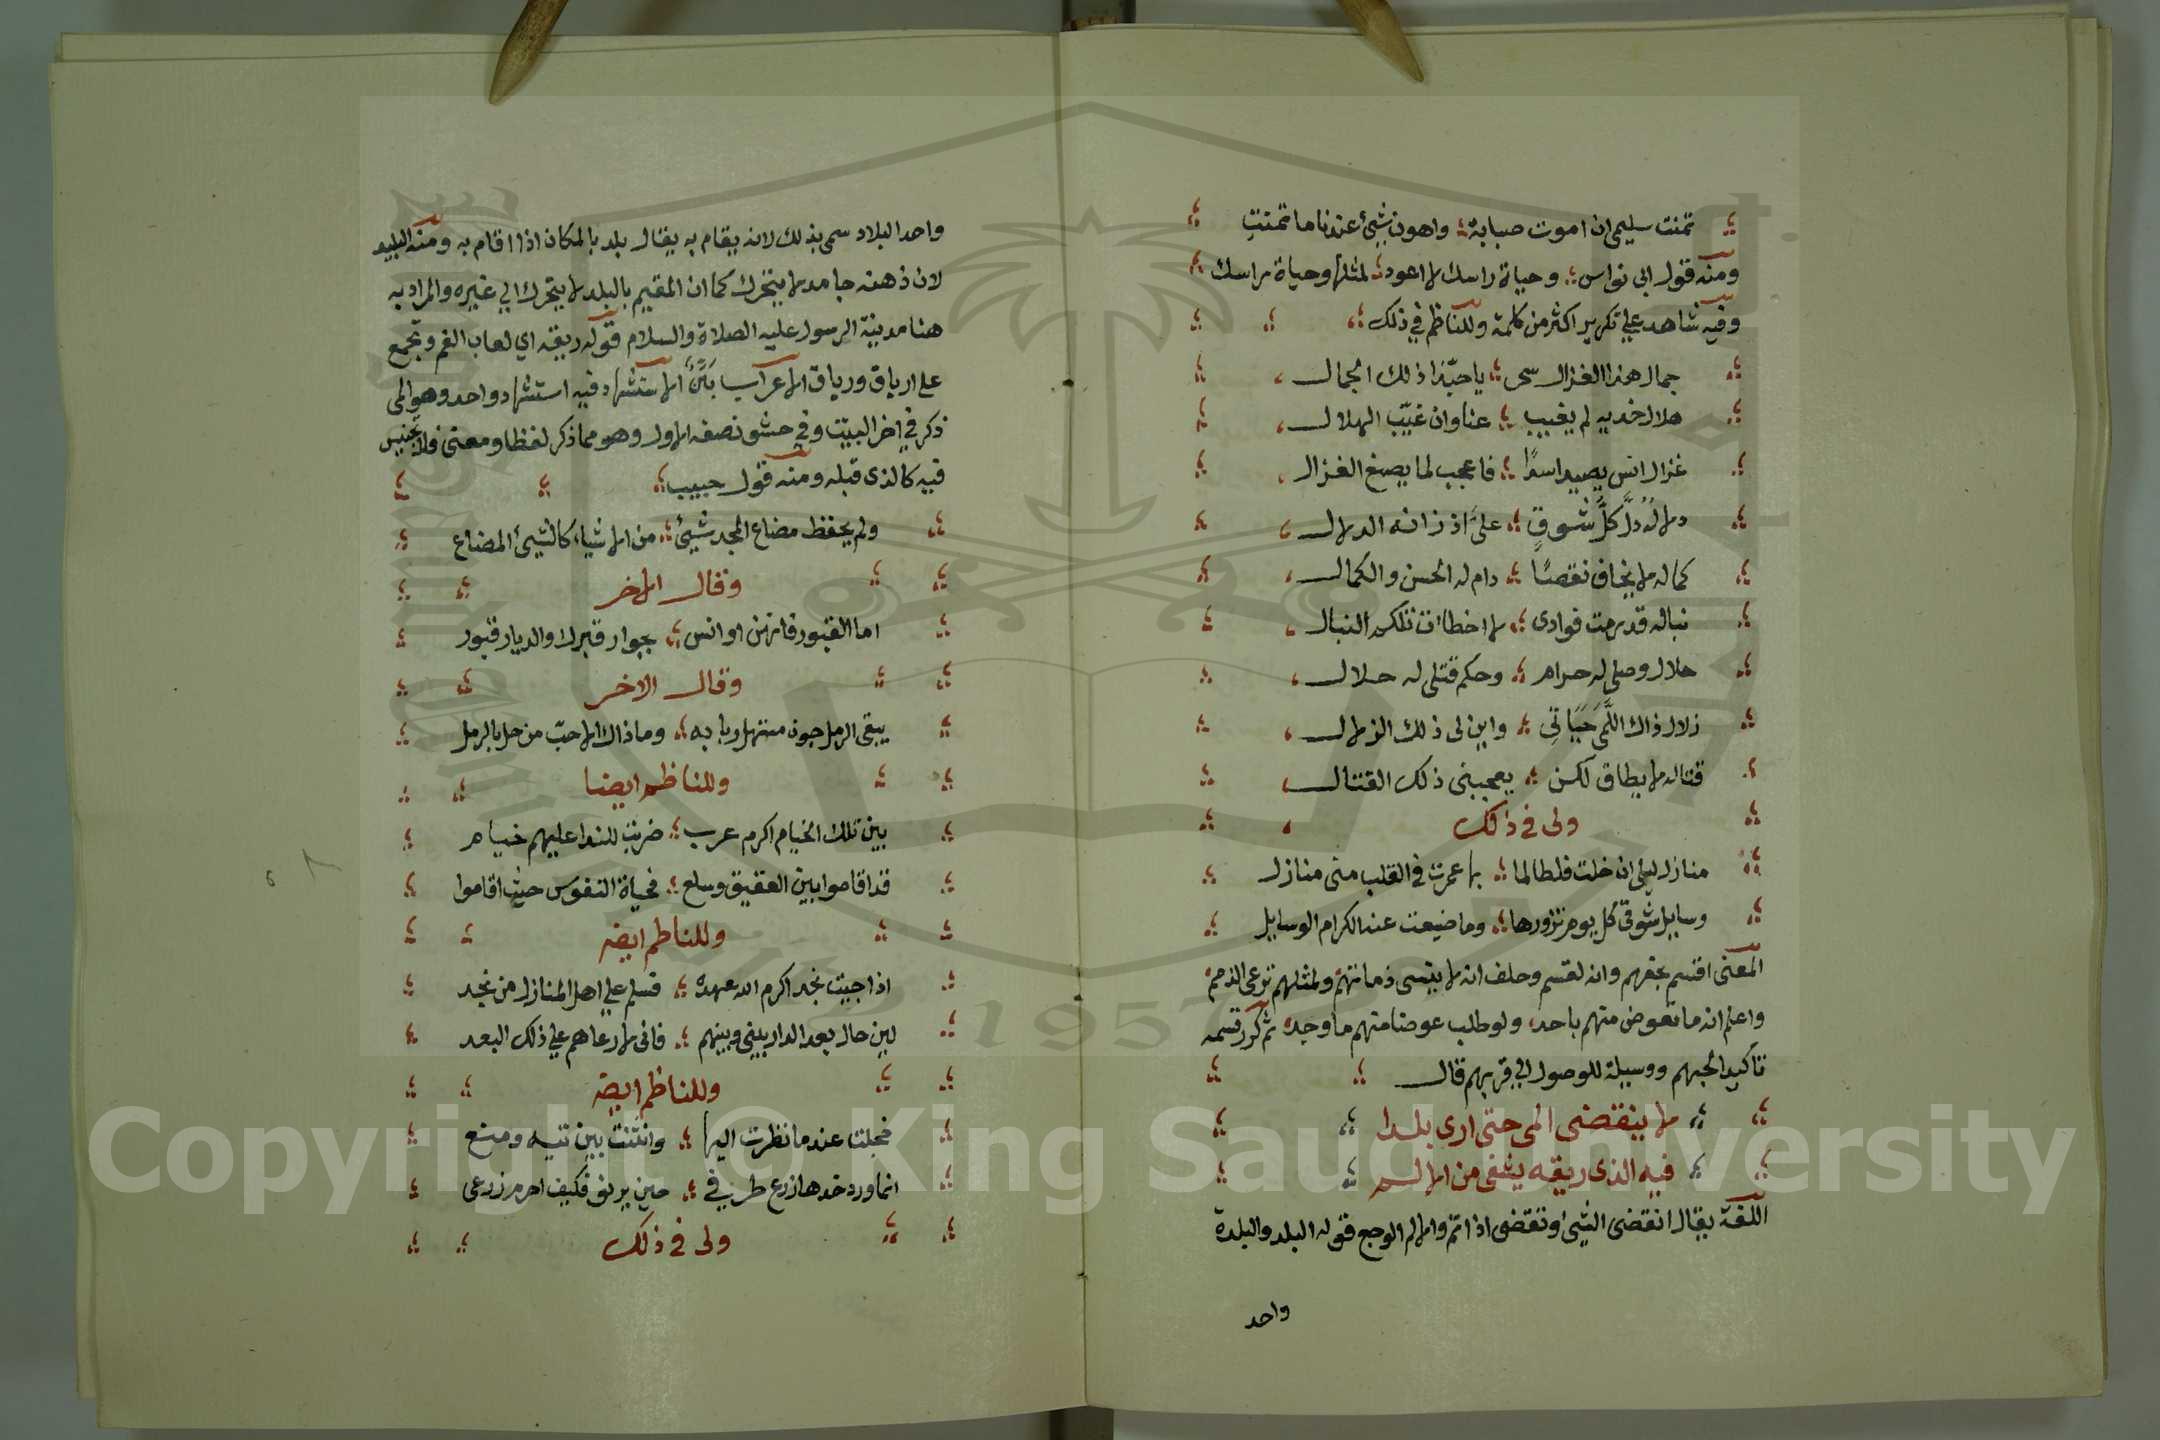 تمنت سليمى ان اموت صبابة ؛ واهون شيئ عندنا ما تمنتِ
ومنه قول ابي نواس ؛ وحياة راسك لا اعود ؛ لمثلها وحياة راسك
وفيه شاهد علي تكرير اكثر من كلمة وللناظم في ذلك ؛
جمال هذا الغزال سحر ؛ يا حبّذا ذلك الجمال
هلال خديه لم يغيب ؛ عنا وان غيّب الهلال
غزال انس يصيد اسدًا ؛ فاعجب لما يصنع الغزال
دلاله دلَّ كلَّ شوقٍ ؛ عليَّ اذ زانه الدلال
كماله لا يخاف نقصًا ؛ دام له الحسن والكمال
نباله قد رمت فوادى ؛ لا اخطات تلكم النبال
حلال وصلى له حرام ؛ وحكم قتلى له حلال
زلال ذاك اللَّمَى حَيَاتِي ؛ واين لى ذلك الزلال
قتاله لا يطاق لكن ؛ يعجبنى ذلك القتال
ولى في ذلك
منازل ليلى ان خلت فلطالما ؛ بها عمرت في القلب منى منازل
وسايل شوقى كل يوم تزورها ؛ وما ضيعت عند الكرام الوسايل
المعنى اقسم بحقهم وانه لقسم وحلف انه لا ينسى ذمامتهم ولمثلهم ترعى الذمم
واعلم انه ما تعوض منهم باحد، ولو طلب عوضا منهم ما وجده ثم كرر قسمه
تاكيدا لحبهم ووسيلة للوصول الي قربهم قال
لا ينقضى المى حتى ارى بلدا
فيه الذى ريقه يشفى من الالم
اللغة يقال انقضى الشيئ وتقضى اذا تم والالم الوجع قوله البلد والبلدة
واحد
واحد البلاد سمى بذلك لانه يقام به يقال بلد بالمكان اذا اقام به ومنه البليد
لان ذهنه جامد لا يتحرك كما ان المقيم بالبلد لا يتحرك الي غيره والمراد به
هنا مدينة الرسول عليه الصلاة والسلام قوله ريقه اي لعاب الفم وتجمع
على ارياق ورياق الاعراب بَيّنٌ الاستشهاد فيه استشهاد واحد وهو المى
ذكر في اخر البيت وفي حشو نصفه الاول وهو مما ذكر لفظا ومعنى فلا تجنيس
فيه كالذى قبله ومنه قول حبيب ؛
ولم يحفظ مضاع المجد شيئ ؛ من الاشياء كالشيئ المضاع
وقال الاخر
اما القبور فانهن اوانس ؛ بجوار قبرك والديار قبور
وقال الاخر
يبقى الرمل جون مستهل ربابه ؛ وما ذاك الا حبّ من حل بالرمل
وللناظم ايضا
بين تلك الخيام اكرم عرب ؛ ضربت للندا عليهم خيام
قد اقاموا بين العقيق وسلع ؛ فحياة النفوس حيث اقاموا
وللناظم ايضه
اذا جيت نجد اكرم الله عهده ؛ فسلم علي اهل المنازل من نجد
لين حال بعد الدار بينى وبينهم ؛ فانى لارعاهم علي ذلك البعد
وللناظم ايضه
خجلت عندما نظرت اليها ؛ وانثنت بين تيه ومنع
انما ورد خدها ازرع طرفي ؛ حين يرنو فكيف احرم زرعى
ولى في ذلك
Copyright © King Saud University
1957